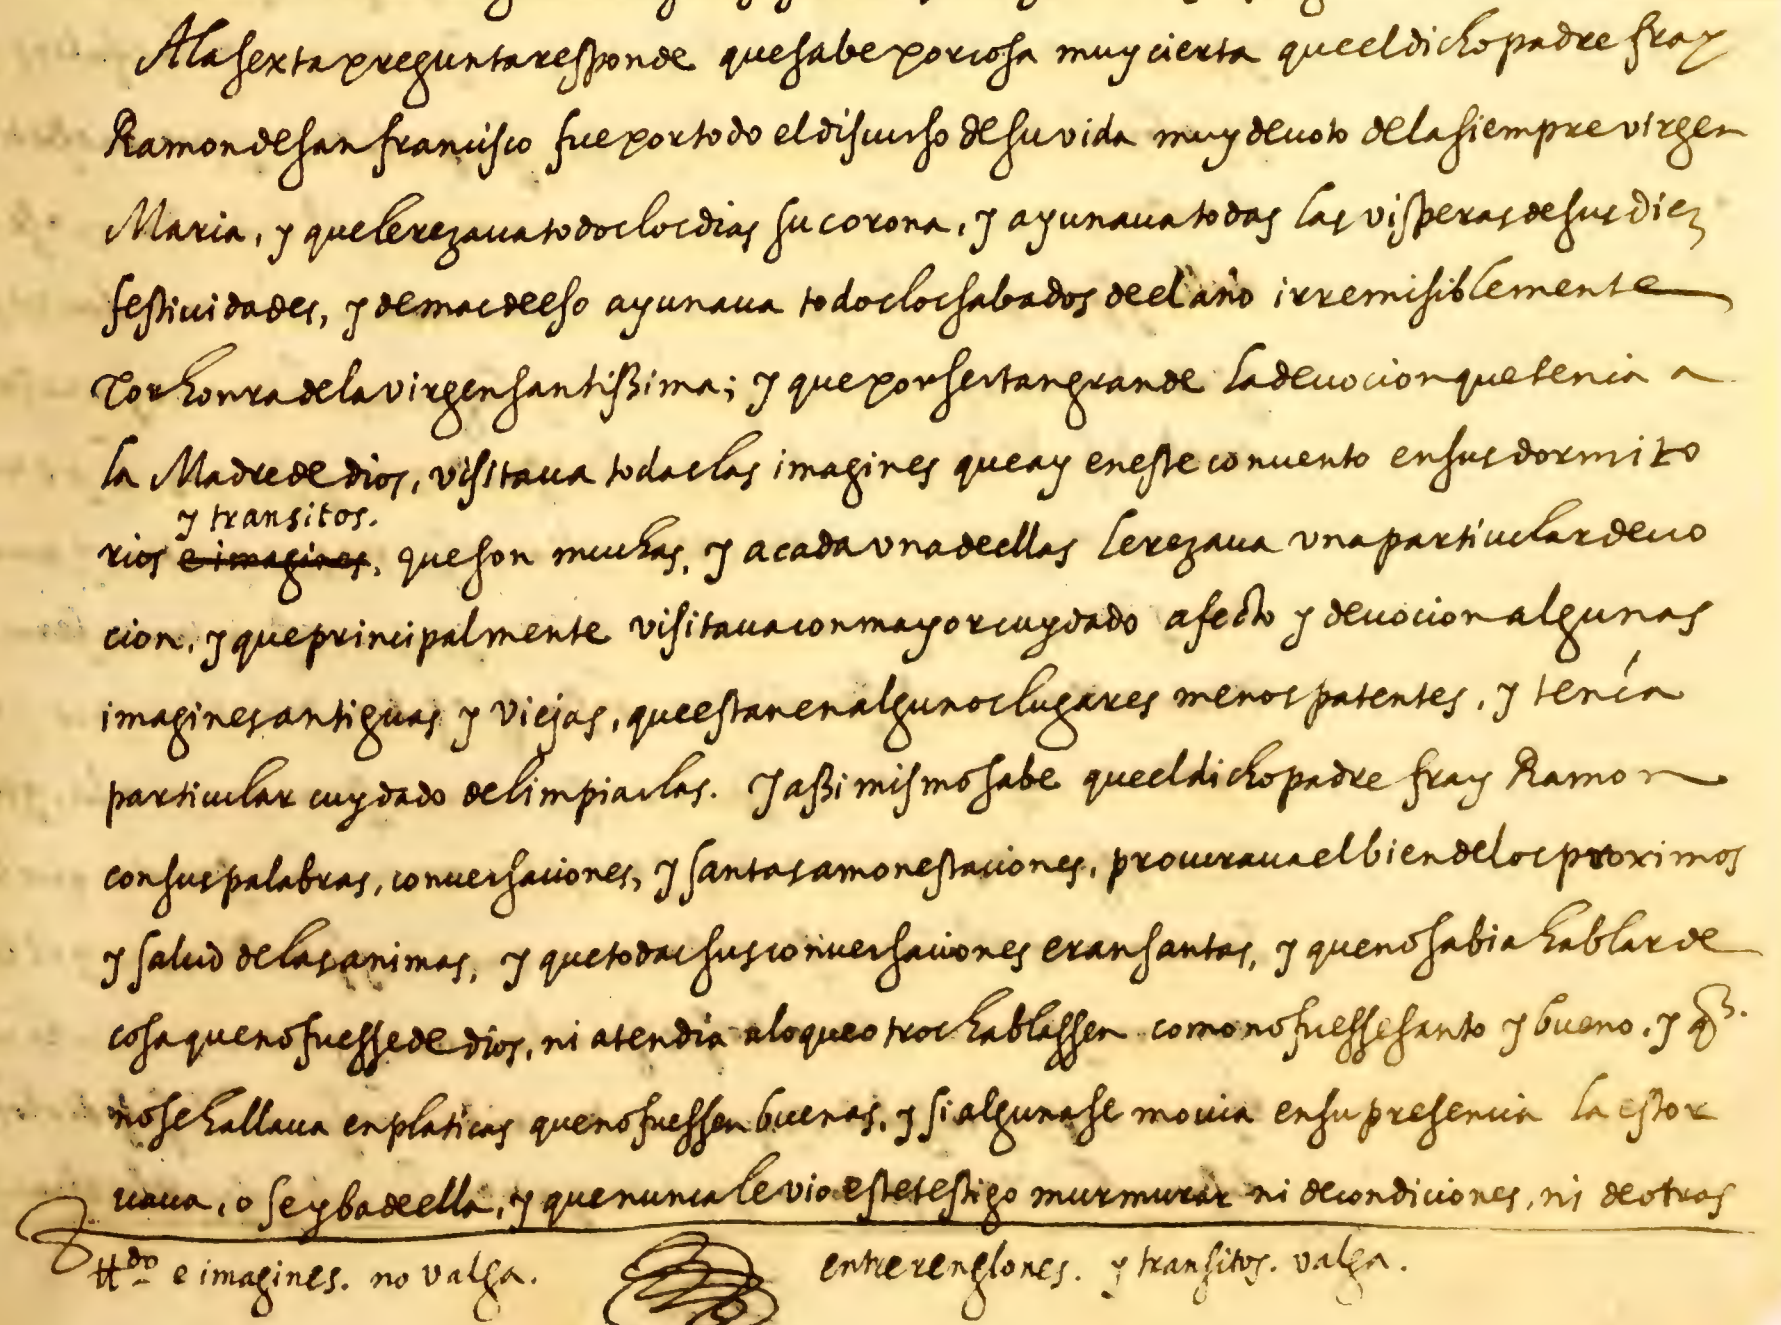 A la sexta pregunta responde que sabe por cosa muy cierta que el dicho padre fray
Ramon de san francisco fue por todo el discurso de su vida muy deuoto de la siempre virgen
Maria, y que le rezaua todos los dias su corona, y ayunaua todas las visperas de sus diez
festiuidades, y demas de eso ayunaua todos los sabados de el año irremisiblemente
Por honra de la virgen santissima; y que por ser tan grande la deuocion que tenia a
la Madre de dios, visitaua todas las imagines que ay en este conuento en sus dormito
y transitos.
rios e imagines, que son muchas, y a cada vna de ellas le rezaua vna particular deuo
cion, y que principalmente visitaua con mayor cuydado afecto y deuocion algunas
imagines antiguas y viejas, que estan en algunos lugares menos patentes, y tenía
particular cuydado de limpiarlas. Y assi mismo sabe que el dicho padre fray Ramon
con sus palabras, conuersaciones, y santas amonestaciones, procuraua el bien de los proximos
y salud de las animas, y que todas sus conuersaciones eran santas, y que no sabia hablar de
cosa que no fuesse de dios, ni atendia a lo que otros hablassen como no fuesse santo y bueno, y q
no se hallaua en platicas que no fuessen buenas, y si alguna se mouia en su presencia la estor
uaua, o se yba de ella, y que nunca le vio este testigo murmurar ni de condiciones, ni de otras
tt.do e imagines. no valga. entre renglones. y transitos. valga.